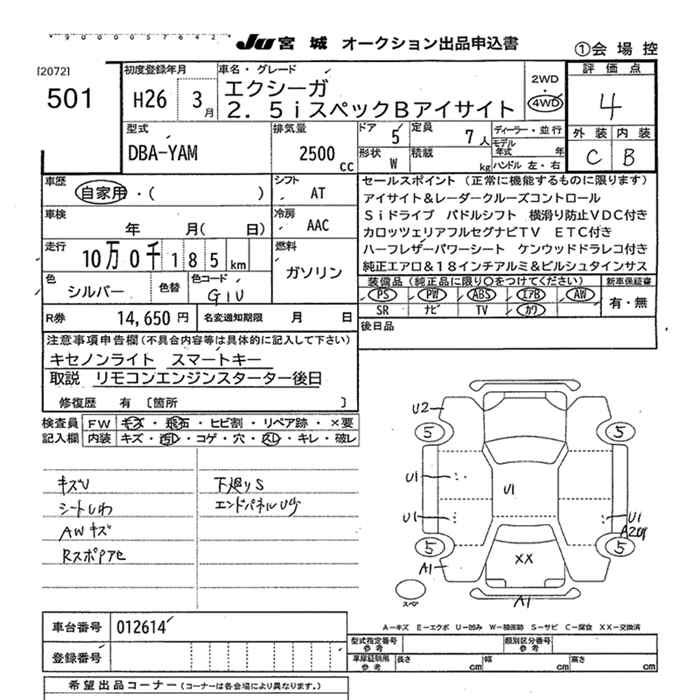 JU 宮城 オークション出品申込書
①会場控
[2072]
501
初度登録年月
H26 3月
車名・グレード
エクシーガ
2.5iスペックBアイサイト
2WD
・
4WD
評価点
4
外装 内装
C B
型式
DBA-YAM
排気量
2500 cc
ドア 5
定員 7人
ディーラー・並行
モデル年式 年
形状 W
積載 kg
ハンドル 左・右
車歴
自家用・( )
シフト
AT
車検
年 月( 日)
冷房
AAC
走行
10万0千185km
燃料
ガソリン
色
シルバー
色替
色コード
G1U
R券 14,650円
名変通知期限 月 日
セールスポイント (正常に機能するものに限ります)
アイサイト&レーダークルーズコントロール
Siドライブ パドルシフト 横滑り防止VDC付き
カロッツェリアフルセグナビTV ETC付き
ハーフレザーパワーシート ケンウッドドラレコ付き
純正エアロ&18インチアルミ&ビルシュタインサス
装備品(純正品に限り○をつけてください)
PS PW ABS エアB AW
SR ナビ TV カワ
新車保証書
有・無
後日品
注意事項申告欄(不具合内容等は具体的に記入して下さい)
キセノンライト スマートキー
取説 リモコンエンジンスターター後日
修復歴 有 〔箇所 〕
検査員記入欄
FW キズ・飛石・ヒビ割・リペア跡・×要
内装 キズ・コゲ・穴・キレ・破レ
キズU
シートしわ
AWキズ
RスポPアセ
下廻りS
エンドパネルUS
U2
5
5
U1
U1
U1
U1
A2
5
5
A1
XX
A1
スペア
A-キズ E-エクボ U-凹み W-補修跡 S-サビ C-腐食 XX-交換済
車台番号 012614
登録番号
型式指定番号 参考
類別区分番号 参考
車庫証明用 参考
長さ cm
幅 cm
高さ cm
希望出品コーナー(コーナーは各会場により異なります。)